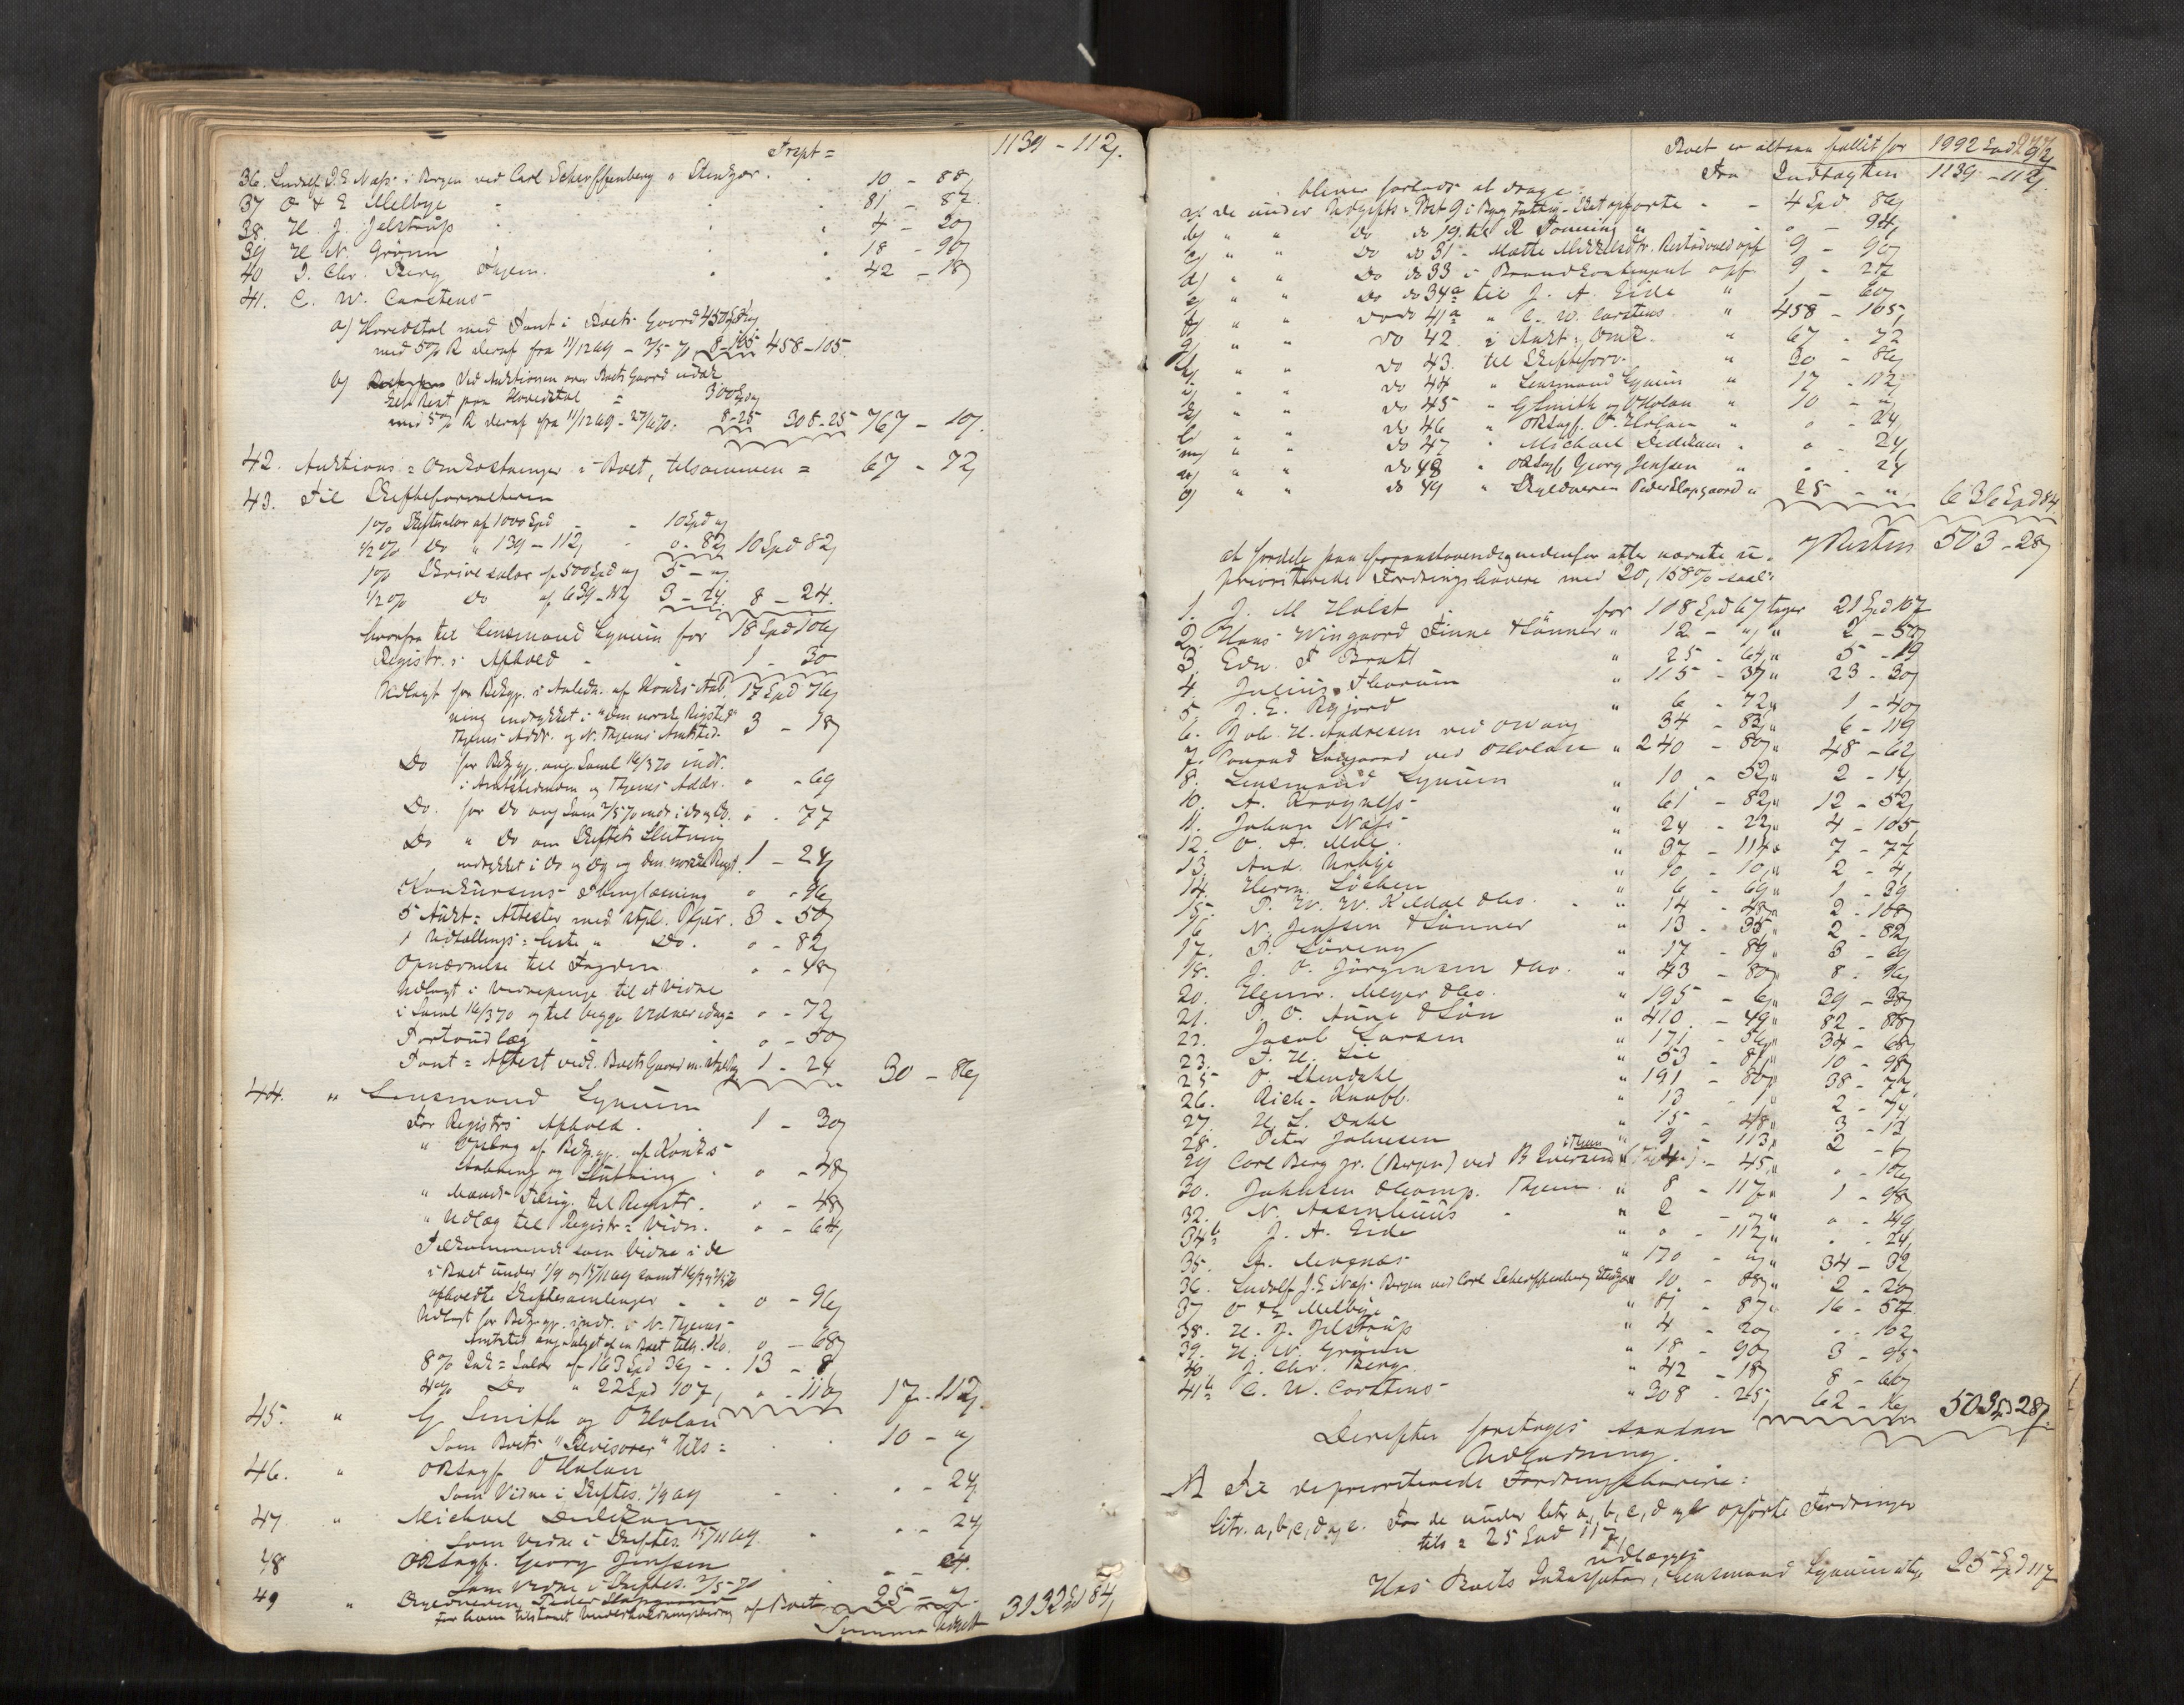 Trspt = 1139 - 112,
36. Ludolf J. E. Næss i Bergen ved Carl Scharffenberg i Stenkjær . 10 - 88,
37 O & E Melbye 81 - 87.
38. H. J. Jelstrup 4 - 20,
39 H. N. Grönn 18 - 90,
40 J. Chr. Berg Thjem. 42 - 18,
41. C. W. Carstens
a) Hovedstol med Pant i Boets Gaard 450 Spd „
med 5% R deraf fra 11/12 69 - 2/5 70 8-105 458 - 105.
b) Ved Auktionen over Boets Gaard udæk
ket Rest paa Hovedstol = 300 Spd „
med 5% R deraf fra 11/12 69 - 27/6 70: 8-25 308-25 767 - 10,
42. Auktions = Omkostninger i Boet, tilsammen = 67 - 72,
43. Til Skifteforvalteren
1% Skiftesalær af 1000 Spd - 10 Spd „
1/2% Do „ 139 - 112, 0 - 82, 10 Spd 82,
1% Skrivesalær af 500 Spd „ 5 - „
1/2% Do af 639 - 112, 3 - 24. 8 - 24.
hvorfra til Lensmand Lynum for 18 Spd 106,
Registr. s Afhold - 1 - 30
17 Spd 76,
Udlagt for Bekjg. i Anledn. af Konks Aab
ning indrykket i "Den norske Rigstid"
Thjems Addr. og N. Thjems Amtstid. 3 - 18,
Do for Bekjg. ang Saml 16/3 70 indr.
i Amtstidenden og Thjems Addr. „ - 69
Do. for Do ang Saml 2/5 70 indr i Do & Do. „ - 77
Do „ Do om Skiftets Slutning
indrykket i Do og Do og den norske Rigst. 1 - 24,
Konkursens Thinglæsning „ - 96,
5 Aukt = Attester med stpl. Papir. 3 - 50,
1 Udtællings = liste „ Do. 0 - 82,
Opnævnelse til Fogden „ - 48,
Udlagt i Vidnepenge til et Vidne
i Saml 16/3 70 og til begge Vidner idag = „ - 72,
Portoudlæg „ - 50,
Pant = Attest vedk. Boets Gaard m. stpl P 1 - 24 30 - 86,
44. „ Lensmand Lynum
For Registrs Afhold . 1 - 30,
„ Opslag af Bekjg. af Konks
Aabning og Slutning . „ - 48,
„ Mænds Tilsig. til Registr. „ - 48,
„ Udlæg til Registr = Vidn. „ - 64,
Tilkommende som Vidne i de
i Boet under 1/9 og 15/11 69 samt 16/3 & 2/5 70
afholdte Skiftesamlinger „ „ 0 - 96,
Udlagt for Bekjg. indr. i N. Thjems
Amtstid ang Salget af en Boet tilh. Ko. 0 - 68,
8% Ink = Salær af 163 Spd 36, - . 13 - 8
4% Do „ 22 Spd 107, „ - 110, 17 - 112,
45. „ G Smith og O Holan
Som Boets "Revisorer" tils = 10 - „
46. „ ORsagf. O Holan
Som Vidne i Skiftes. 1/9 69 „ - 24,
47 „ Michael Dedekam
Som Vidne i Skiftes. 15/11 69. „ - 24,
48 ORsagf. Georg Jenssen „ - 24.
Som Vidne i Skiftes. 2/5 - 70
49 „ Skyldneren Peder Slapgaard
for ham tilstaaet Underholdningsbidrag af Boet 25 - „
Summa Udgift 3132 Spd 84,
Boet er altsaa fallit for 1992 Spd 92,
Fra Indtægten 1139 - 112,
bliver forlods at drage:
a) De under Udgifts = Post 9 i Byg Fattig = Skat opførte - - 4 Spd 86,
b) „ „ Do do 19 til R Tonning „ „ - 94,
c) „ „ Do do 31 - Mætte Mikkelsdtr. Restaarsløn opf 9 - 90,
d) „ „ Do do 33 i Brandkontingent opf. 9 - 27
e) „ „ Do do 34a til J. A. Eide „ 1 - 60,
f) „ „ Do do 41a „ C. W. Carstens „ 458 - 105,
g) „ „ do 42. i Aukt = Omk. „ 67 - 72
h) „ „ do 43. til Skifteforv. „ 30 - 86,
i) „ „ do 44 „ Lensmand Lynum „ 17 - 112,
k) „ „ do 45 „ G Smith og O Holan „ 10 - „
l) „ „ do 46 „ ORsagf. O. Holan „ 0 - 24,
m) „ „ do 47 „ Michael Dedekam „ 0 - 24,
n) „ „ do 48 „ ORsagf. Georg Jenssen „ „ - 24
o) „ „ do 49 „ Skyldneren Peder Slapgaard „ 25 - „ 636 Spd 84,
Resten 503 - 28,
at fordele paa foranstaaende og nedenfor atter nævnte u =
prioriterede Fordringshavere med 20,158% saal:
1. J. M Holst for 108 Spd 67 tager 21 Spd 107
2. Hans Wingaard Finne & Sönner „ 12 - „ „ 2 - 50,
3. Edv. F Bratt „ 25 - 64 „ 5 - 19
4. Julius Thorum „ 115 - 37 „ 23 - 30,
5. J. E. Rygjord „ 6 - 72 „ 1 - 40,
6. Joh. H. Andresen ved O Wang 34 - 83 „ 6 - 119
7. Conrad Langaard ved O Holan „ 240 - 80 „ 48 - 62,
8. Lensmand Lynum „ 10 - 52 „ 2 - 14,
10. A. Krogness „ 61 - 82 „ 12 - 52,
11. Johan Næss „ 24 - 22 „ 4 - 105,
12. O. A. Moe „ 37 - 114 „ 7 - 77,
13. And. Urbye „ 10 - 10 „ 2 - 4,
14. Herm. Löchen „ 6 - 69 „ 1 - 39
15. P. W. W. Kildal & Co. „ 14 - 48 „ 2 - 108,
16 N. Jenssen & Sönner „ 13 - 35 „ 2 - 82,
17. P. Löreng „ 17 - 89 „ 3 - 69
18. J. O. Jörgensen & Co. „ 43 - 80 „ 8 - 96,
20. Henr. Meyer & Co. „ 195 - 6 „ 39 - 38,
21. P. O. Aune & Sön „ 410 - 49 „ 82 - 88,
22. Jacob Larsen „ 171 - 56 „ 34 - 68,
23. F. H. Lie „ 53 - 81 „ 10 - 98,
25 O. Stendahl „ 191 - 80 „ 38 - 76,
26. Rich. Knoff. „ 13 - 1 „ 2 - 74,
27. H. L. Dahl „ 15 - 48 „ 3 - 13
28. Peter Johnsen „ 9 - 113 „ 2 - „
29 Carl Berg jr. (Bergen) ved B Iversen i Thjem „ 4 - 45 „ „ - 106,
30. Johnsen & Comp. Thjem „ 8 - 117 „ 1 - 98,
32. N. Aasenhuus „ 2 - „ „ „ - 49,
34b J. A. Eide „ 0 - 112 „ „ - 24,
35. A. Mognæs „ 170 - „ „ 34 - 32,
36. Ludolf J. E. Næss Bergen ved Carl Scharffenberg Stenkjær „ 10 - 88 „ 2 - 20,
37 O & E Melbye „ 81 - 87 „ 16 - 57
38. H. J. Jelstrup „ 4 - 20 „ „ - 102
39. H. N. Grönn „ 18 - 90, 3 - 95
40. J. Chr. Berg „ 42 - 18, 8 - 60,
41b C. W. Carstens „ 308 - 25, 62 - 16, 503 Spd 28,
Derefter foretages saadan
Udlodning.
A Til de prioriterede Fordringshavere:
litr. a, b, c, d og e. For de under litr a, b, c, d og e opførte Fordringer
tils = 25 Spd 117,
udlægges
Hos Boets Inkassator, Lensmand Lynum 25 Spd 117